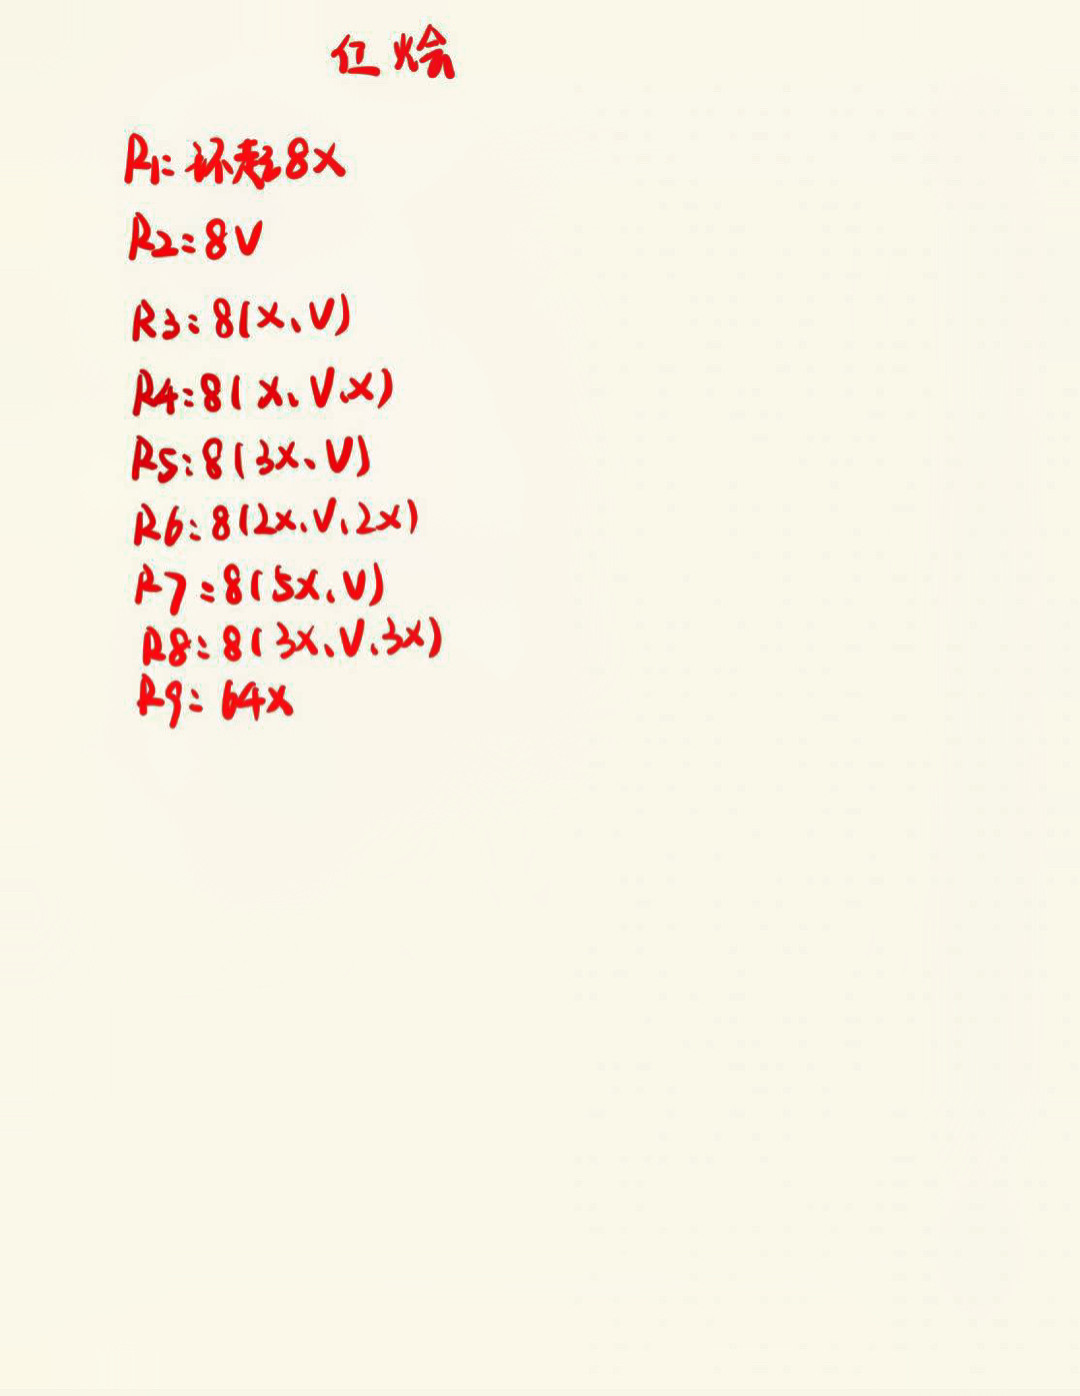 红烩
R1: 环起8X
R2: 8V
R3: 8(X、V)
R4: 8(X、V、X)
R5: 8(3X、V)
R6: 8(2X、V、2X)
R7: 8(5X、V)
R8: 8(3X、V、3X)
R9: 64X